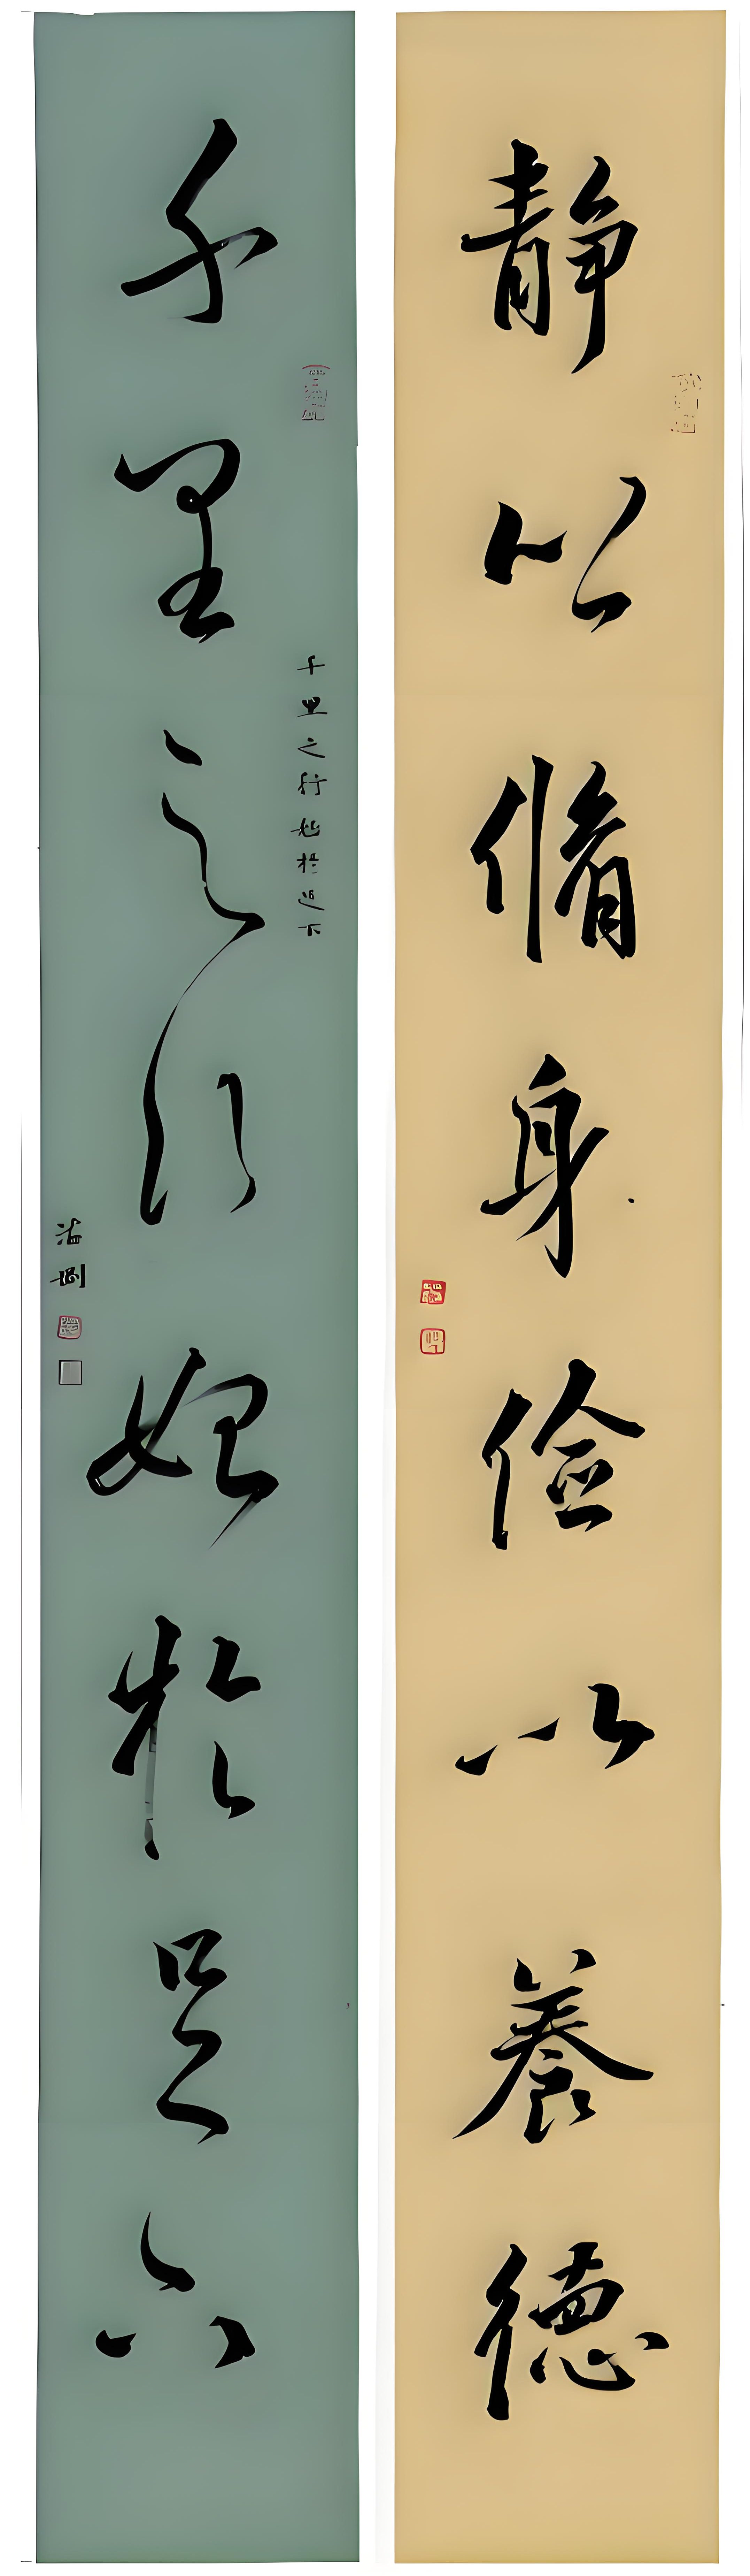 静以脩身儉以養德
千里之行始於足下
千里之行始於足下